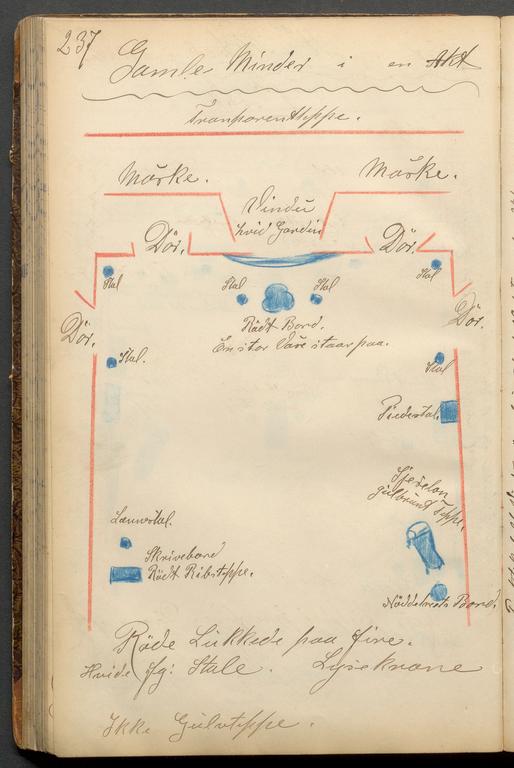 237
Gamle Minder i en Akt
Tranparenttæppe.
Mörke. Mörke.
Vindu
hvid Gardin
Dör. Dör.
Stol Stol
Stol Stol
Dör. Dör.
Rödt Bord.
En stor Vase staar paa.
Stol. Stol
Piedestal.
gulbrunt Teppe.
Lænestol.
Skrivebord
Rödt Ribsteppe.
Nöddetræs Bord.
Röde Lukkede paa fire.
Hvide fg: Stole. Lysekrone
Ikke Gulvteppe.